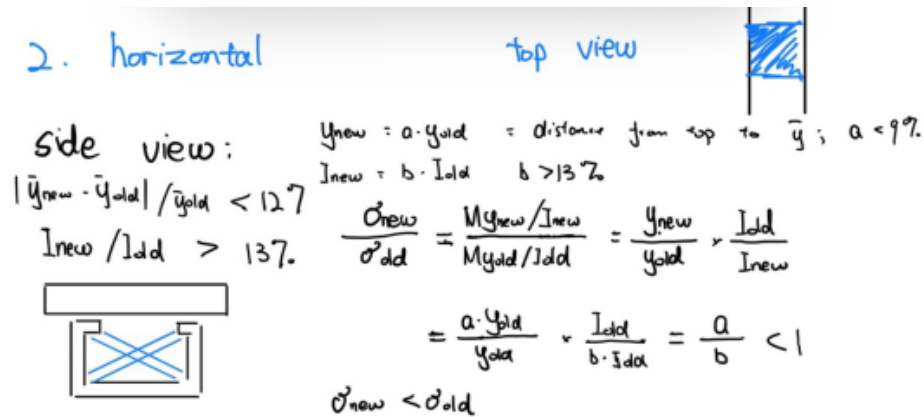 2. horizontal
top view
side view:
|ȳnew - ȳold| / ȳold < 12%
Inew / Iold > 13%
ynew = a·yold = distance from top to ȳ; a < 9%
Inew = b·Iold b > 13%
σnew / σold = (Mynew/Inew) / (Myold/Iold) = ynew / yold × Iold / Inew
= a·yold / yold × Iold / b·Iold = a / b < 1
σnew < σold